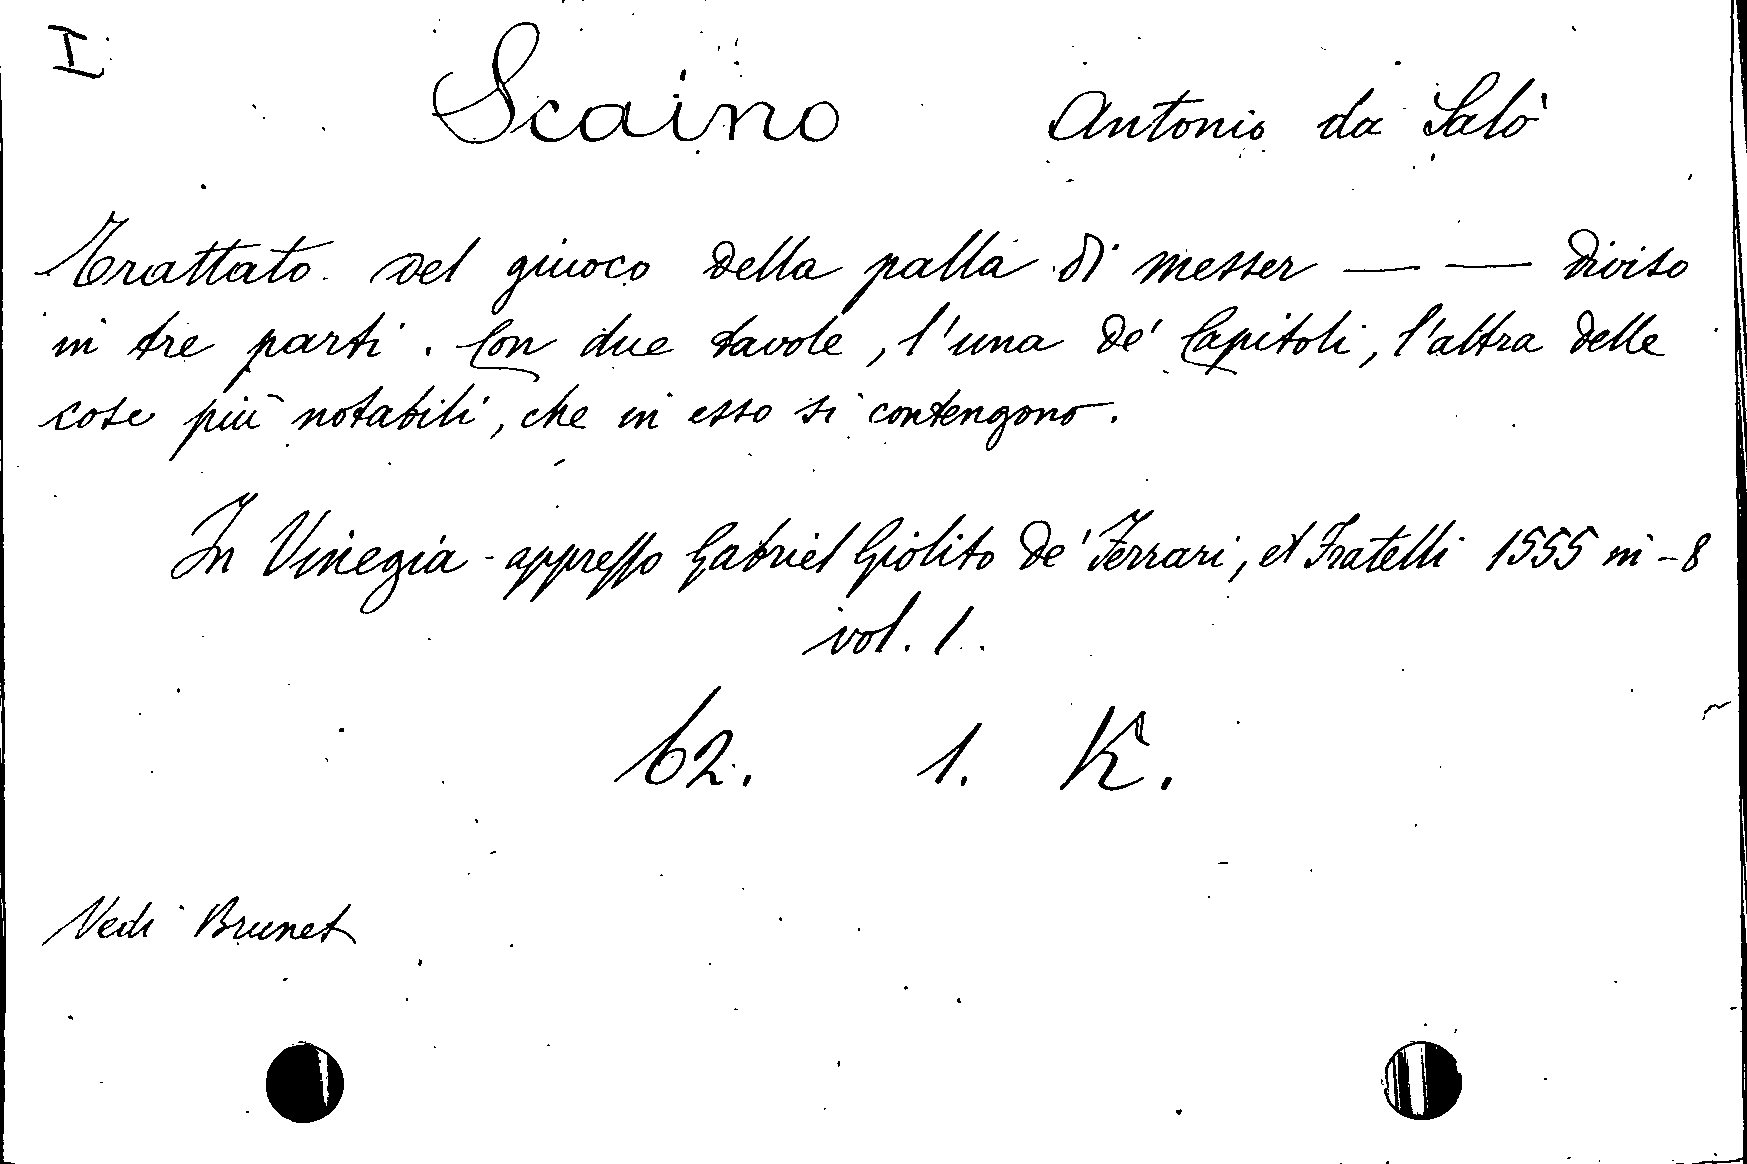 I
Scaino Antonio da Salò
Trattato del giuoco della palla di messer — — diviso
in tre parti. Con due tavole, l'una de' Capitoli, l'altra delle
cose più notabili, che in esso si contengono.
In Vinegia - appresso Gabriel Giolito de' Ferrari, et Fratelli 1555 in-8
vol. 1.
62. 1. K.
Vedi Brunet